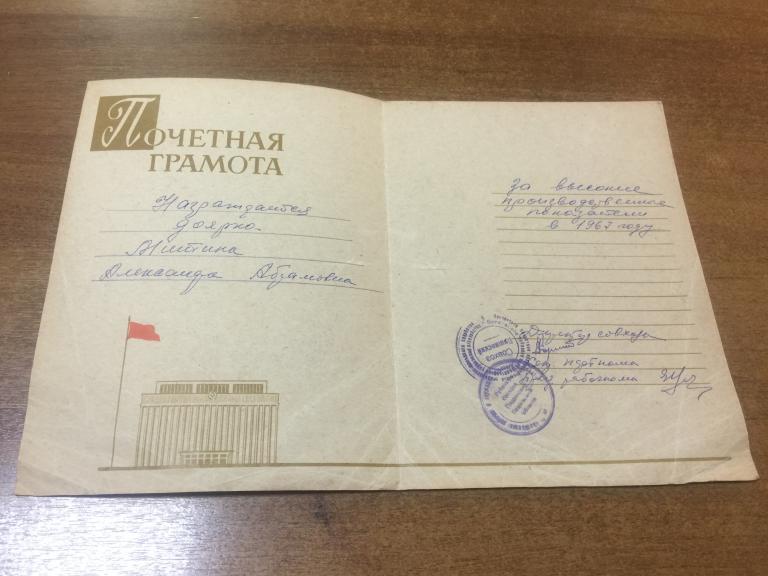 ПОЧЕТНАЯ
ГРАМОТА
Награждается
доярка
Митина
Александра Абрамовна
За высокие
производственные
показатели
в 1967 году
совхоза
парткома
рабочкома
Совхоз